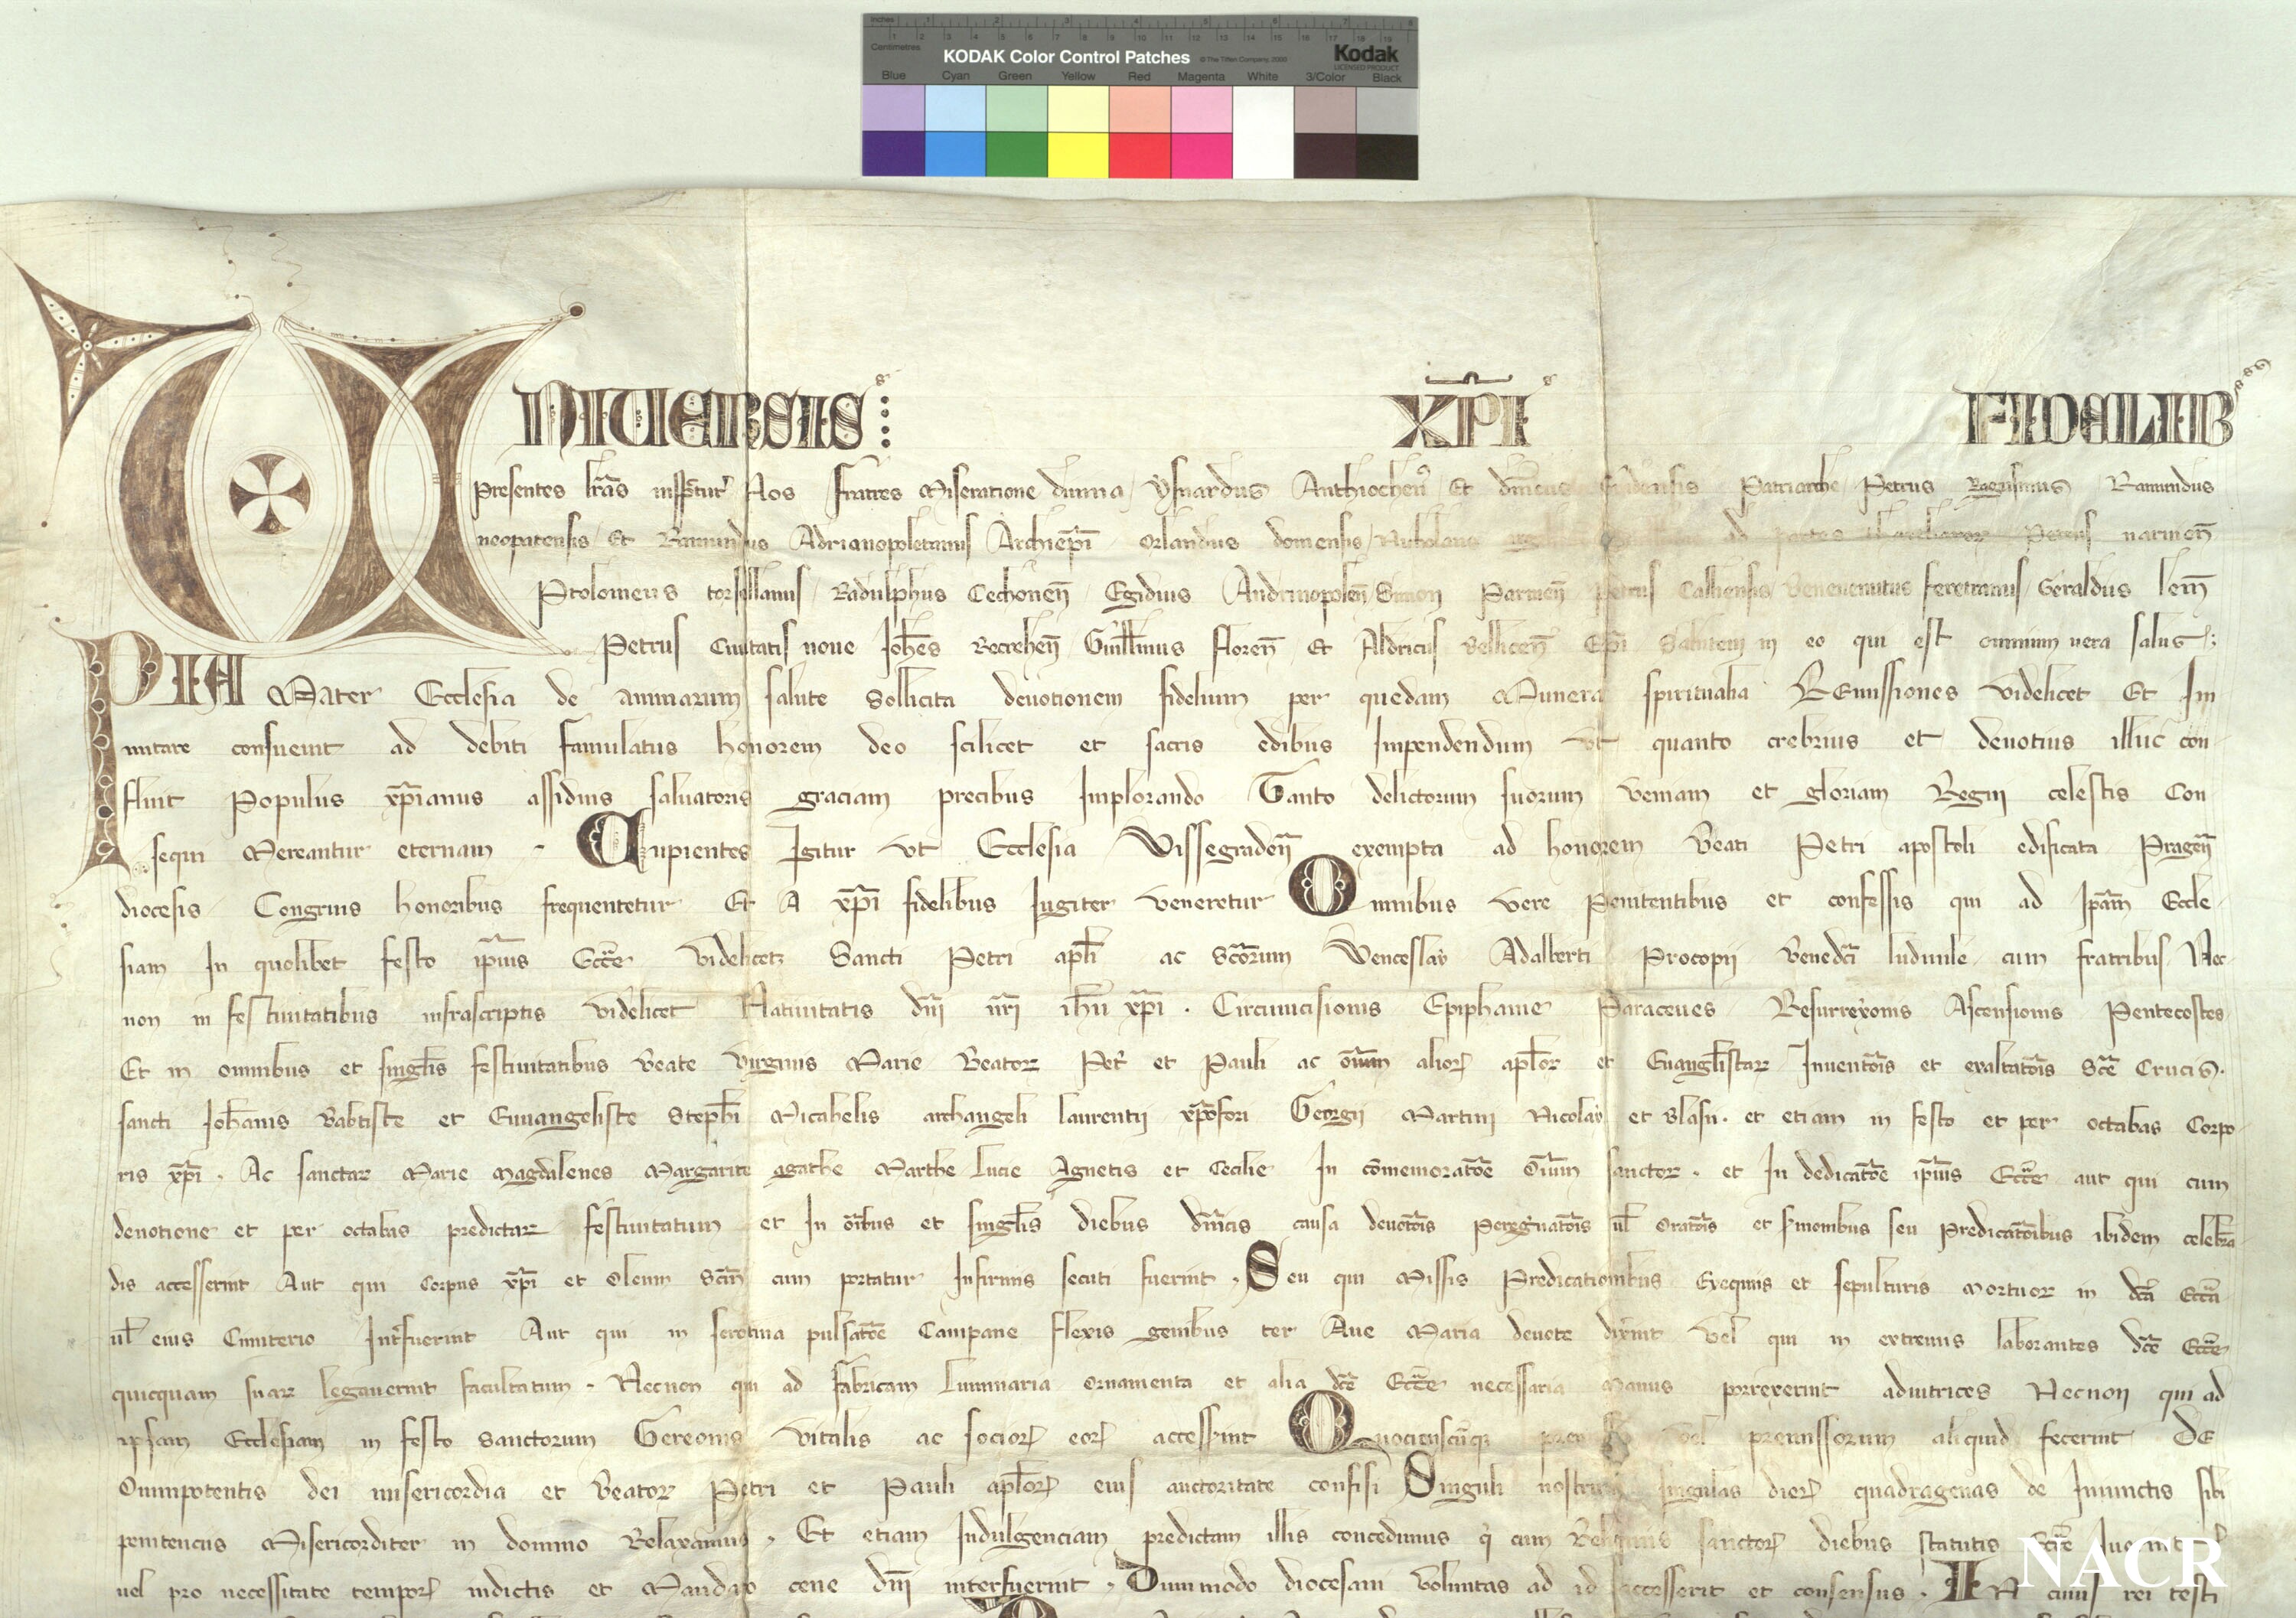 Inches 1 2 3 4 5 6 7 8
Centimetres 1 2 3 4 5 6 7 8 9 10 11 12 13 14 15 16 17 18 19
KODAK Color Control Patches © The Tiffen Company, 2000 Kodak
LICENSED PRODUCT
Blue Cyan Green Yellow Red Magenta White 3/Color Black
UNIUERSIS XPI FIDELIB
Presentes lras Nos fratres Miseratione diuina Ysnardus Anthiochen Et Patriarche Petrus Ramundus
neopatensis Et Ramundus Adrianopoletanus Archiepi Orlandus domensis ad partes Petrus narnien
Ptolomeus torsellanus Radulphus Egidius Andrinopolen Simon Parmen Petrus Calliensis Beneuenutus feretranus Geraldus lem
Petrus Ciuitatis noue Johes Guillmus floren Et Aldricus Epi Salutem in eo qui est omnium uera salus
PIA Mater Ecclesia de animarum salute sollicita deuotionem fidelium per quedam Munera spiritualia REmissiones videlicet Et In
uitare consueuit ad debiti famulatus honorem deo scilicet et sacris edibus Impendendum vt quanto crebrius et deuotius illuc con
fluit Populus xpianus assiduis saluatoris graciam precibus Implorando Tanto delictorum suorum veniam et gloriam Regni celestis Con
sequi Mereantur eternam . Cupientes Igitur vt Ecclesia Wissegraden exempta ad honorem Beati Petri apostoli edificata Pragen
diocesis Congruis honoribus frequentetur Et A xpi fidelibus Iugiter veneretur Omnibus vere Penitentibus et confessis qui ad Ipam Eccle
siam In quolibet festo ipius Eccie videlicet Sancti Petri apli ac Scorum Wenceslai Adalberti Procopii Benedci ludmile cum fratribus Nec
non in festiuitatibus infrascriptis videlicet Natiuitatis dni nri ihu xpi . Circumcisionis Epiphanie Parasceues Resurrexonis Ascensionis Pentecostes
Et in omnibus et singlis festiuitatibus beate virginis Marie Beator Petri et Pauli ac oium alior aplor et Euanglistar Inuentois et exaltatois Sce Crucis .
sancti Johanis Babtiste et Euuangeliste Stephi Micahelis archangeli laurentii xpofori Georgii Martini Nicolai et Blasii . et etiam in festo et per octabas Corpo
ris xpi . Ac sanctar Marie Magdalenes Margarite agathe Marthe lucie Agnetis et Cecilie In comemoratoe Oium sanctor . et In dedicatoe ipius Eccie aut qui cum
deuotione et per octabas predictar festiuitatum et In oibus et singlis diebus dnicis causa deuotois Peregrinatois ul Oratois et smonibus seu Predicatoibus ibidem celebra
dis accesserint Aut qui Corpus xpi et Oleum Scm cum portatur Infirmis secuti fuerint . Seu qui Missis Predicationibus Exequiis et sepulturis Mortuor in dca Eccia
ul eius Cimiterio Intfuerint Aut qui in serotina pulsatoe Campane flexis genibus ter Aue Maria deuote dixint vel qui in extremis laborantes dce Eccie
quicquam suar legauerint facultatum . Necnon qui ad fabricam luminaria ornamenta et alia dce Eccie necessaria Manus porrexerint adiutrices Necnon qui ad
ipsam Ecclesiam in festo sanctorum Gereonis vitalis ac socior eor accessint Quociescuq vel premissorum aliquid fecerint DE
Omnipotentis dei misericordia et Beator Petri et Pauli aplor eius auctoritate confisi Singuli nostrum singulas dier quadragenas de Iniunctis sibi
penitencijs Misericorditer in domino Relaxamus . Et etiam Indulgenciam predictam illis concedimus qi cum Reliquiis sanctor diebus statutis
uel pro necessitate tempor indictis et Mandato cene dni interfuerint . Dummodo diocesani voluntas ad id accesserit et consensus . IN cuius rei testi
NACR